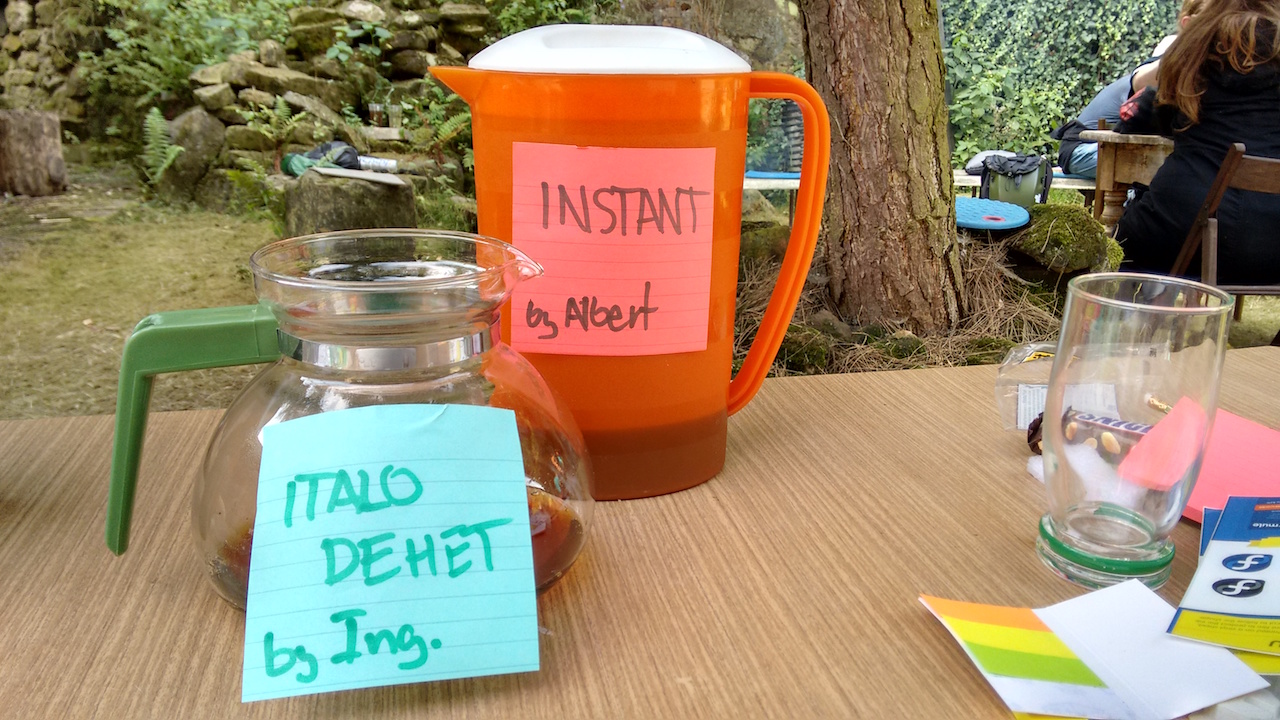 INSTANT
by Albert
ITALO
DEHĒT
by Ing.